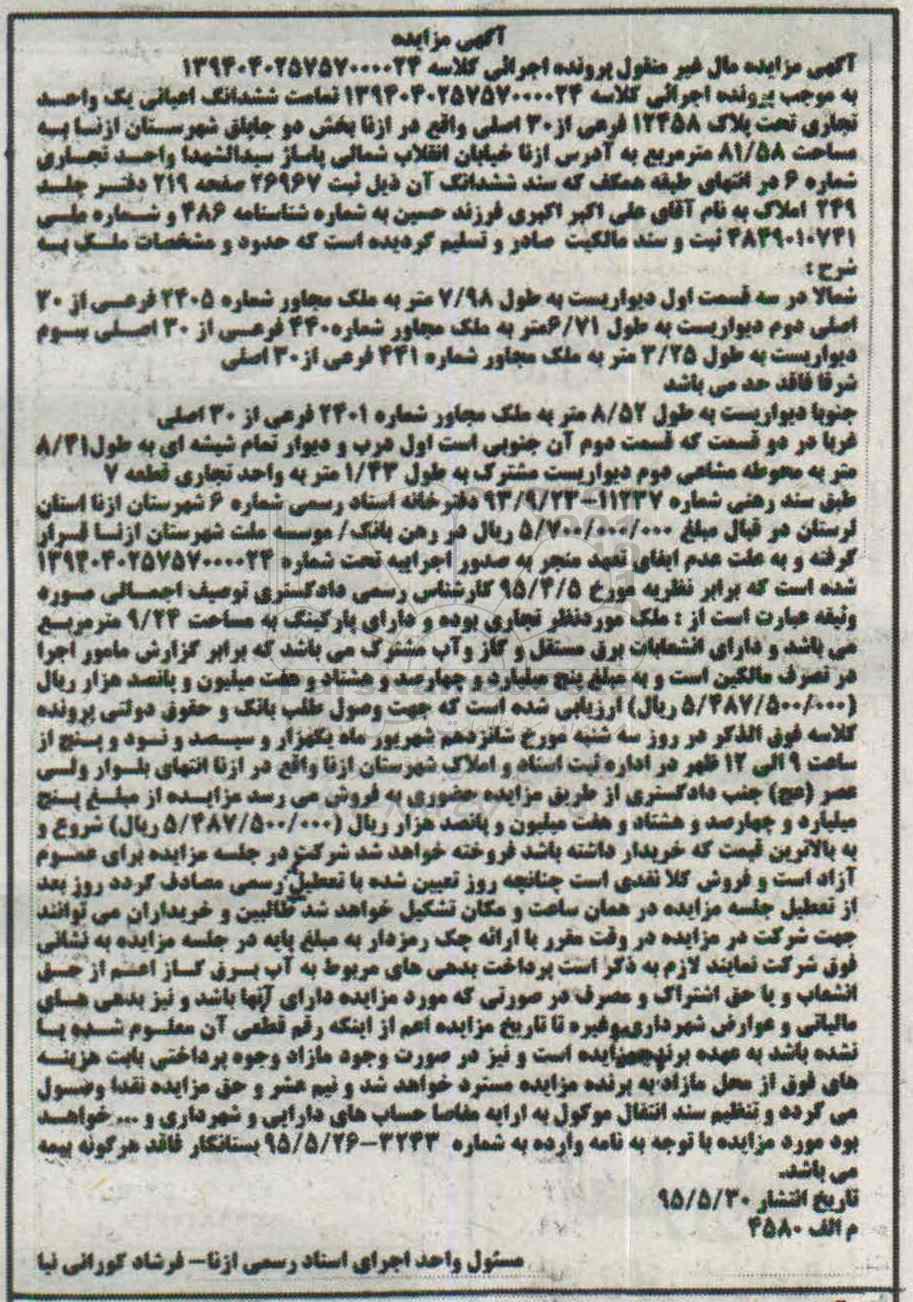 آگهی مزایده
آگهی مزایده مال غیر منقول پرونده اجرائی کلاسه ۱۳۹۴۰۴۰۲۵۷۵۷۰۰۰۰۲۴
به موجب پرونده اجرائی کلاسه ۱۳۹۴۰۴۰۲۵۷۵۷۰۰۰۰۲۴ تمامت ششدانگ اعیانی یک واحد
تجاری تحت پلاک ۱۲۴۵۸ فرعی از۳۰ اصلی واقع در ازنا بخش دو جاپلق شهرستان ازنا به
مساحت ۸۱/۵۸ مترمربع به آدرس ازنا خیابان انقلاب شمالی پاساژ سیدالشهدا واحد تجاری
شماره ۶ در انتهای طبقه همکف که سند ششدانگ آن ذیل ثبت ۲۶۹۶۷ صفحه ۲۱۹ دفتر جلد
۲۴۹ املاک به نام آقای علی اکبر اکبری فرزند حسین به شماره شناسنامه ۴۸۶ و شماره ملی
۴۸۴۹۰۱۰۷۴۱ ثبت و سند مالکیت صادر و تسلیم گردیده است که حدود و مشخصات ملک به
شرح :
شمالا در سه قسمت اول دیواریست به طول ۷/۹۸ متر به ملک مجاور شماره ۲۴۰۵ فرعی از ۳۰
اصلی دوم دیواریست به طول ۶/۷۱متر به ملک مجاور شماره۴۴۰ فرعی از ۳۰ اصلی سوم
دیواریست به طول ۳/۲۵ متر به ملک مجاور شماره ۴۴۱ فرعی از۳۰ اصلی
شرقا فاقد حد می باشد
جنوبا دیواریست به طول ۸/۵۲ متر به ملک مجاور شماره ۲۴۰۱ فرعی از ۳۰ اصلی
غربا در دو قسمت که قسمت دوم آن جنوبی است اول درب و دیوار تمام شیشه ای به طول۸/۴۱
متر به محوطه مشاعی دوم دیواریست مشترک به طول ۱/۴۳ متر به واحد تجاری قطعه ۷
طبق سند رهنی شماره ۱۱۲۳۷–۹۳/۹/۲۳ دفترخانه اسناد رسمی شماره ۶ شهرستان ازنا استان
لرستان در قبال مبلغ ۵/۷۰۰/۰۰۰/۰۰۰ ریال در رهن بانک/ موسسه ملت شهرستان ازنا قرار
گرفته و به علت عدم ایفای تعهد منجر به صدور اجراییه تحت شماره ۱۳۹۴۰۴۰۲۵۷۵۷۰۰۰۰۲۴
شده است که برابر نظریه مورخ ۹۵/۴/۵ کارشناس رسمی دادگستری توصیف اجمالی مورد
وثیقه عبارت است از : ملک موردنظر تجاری بوده و دارای پارکینگ به مساحت ۹/۲۴ مترمربع
می باشد و دارای انشعابات برق مستقل و گاز وآب مشترک می باشد که برابر گزارش مامور اجرا
در تصرف مالکین است و به مبلغ پنج میلیارد و چهارصد و هشتاد و هفت میلیون و پانصد هزار ریال
(۵/۴۸۷/۵۰۰/۰۰۰ ریال) ارزیابی شده است که جهت وصول طلب بانک و حقوق دولتی پرونده
کلاسه فوق الذکر در روز سه شنبه مورخ شانزدهم شهریور ماه یکهزار و سیصد و نود و پنج از
ساعت ۹ الی ۱۲ ظهر در اداره ثبت اسناد و املاک شهرستان ازنا واقع در ازنا انتهای بلوار ولی
عصر (عج) جنب دادگستری از طریق مزایده حضوری به فروش می رسد مزایده از مبلغ پنج
میلیارد و چهارصد و هشتاد و هفت میلیون و پانصد هزار ریال (۵/۴۸۷/۵۰۰/۰۰۰ ریال) شروع و
به بالاترین قیمت که خریدار داشته باشد فروخته خواهد شد شرکت در جلسه مزایده برای عموم
آزاد است و فروش کلا نقدی است چنانچه روز تعیین شده با تعطیل رسمی مصادف گردد روز بعد
از تعطیل جلسه مزایده در همان ساعت و مکان تشکیل خواهد شد طالبین و خریداران می توانند
جهت شرکت در مزایده در وقت مقرر با ارائه چک رمزدار به مبلغ پایه در جلسه مزایده به نشانی
فوق شرکت نمایند لازم به ذکر است پرداخت بدهی های مربوط به آب برق گاز اعم از حق
انشعاب و یا حق اشتراک و مصرف در صورتی که مورد مزایده دارای آنها باشد و نیز بدهی های
مالیاتی و عوارض شهرداری وغیره تا تاریخ مزایده اعم از اینکه رقم قطعی آن معلوم شده یا
نشده باشد به عهده برنده مزایده است و نیز در صورت وجود مازاد وجوه پرداختی بابت هزینه
های فوق از محل مازاد به برنده مزایده مسترد خواهد شد و نیم عشر و حق مزایده نقدا وصول
می گردد و تنظیم سند انتقال موکول به ارایه مفاصا حساب های دارایی و شهرداری و ... خواهد
بود مورد مزایده با توجه به نامه وارده به شماره ۳۲۴۳–۹۵/۵/۲۶ بستانکار فاقد هرگونه بیمه
می باشد.
تاریخ انتشار ۹۵/۵/۳۰
م الف ۴۵۸۰
مسئول واحد اجرای اسناد رسمی ازنا– فرشاد گورانی نیا